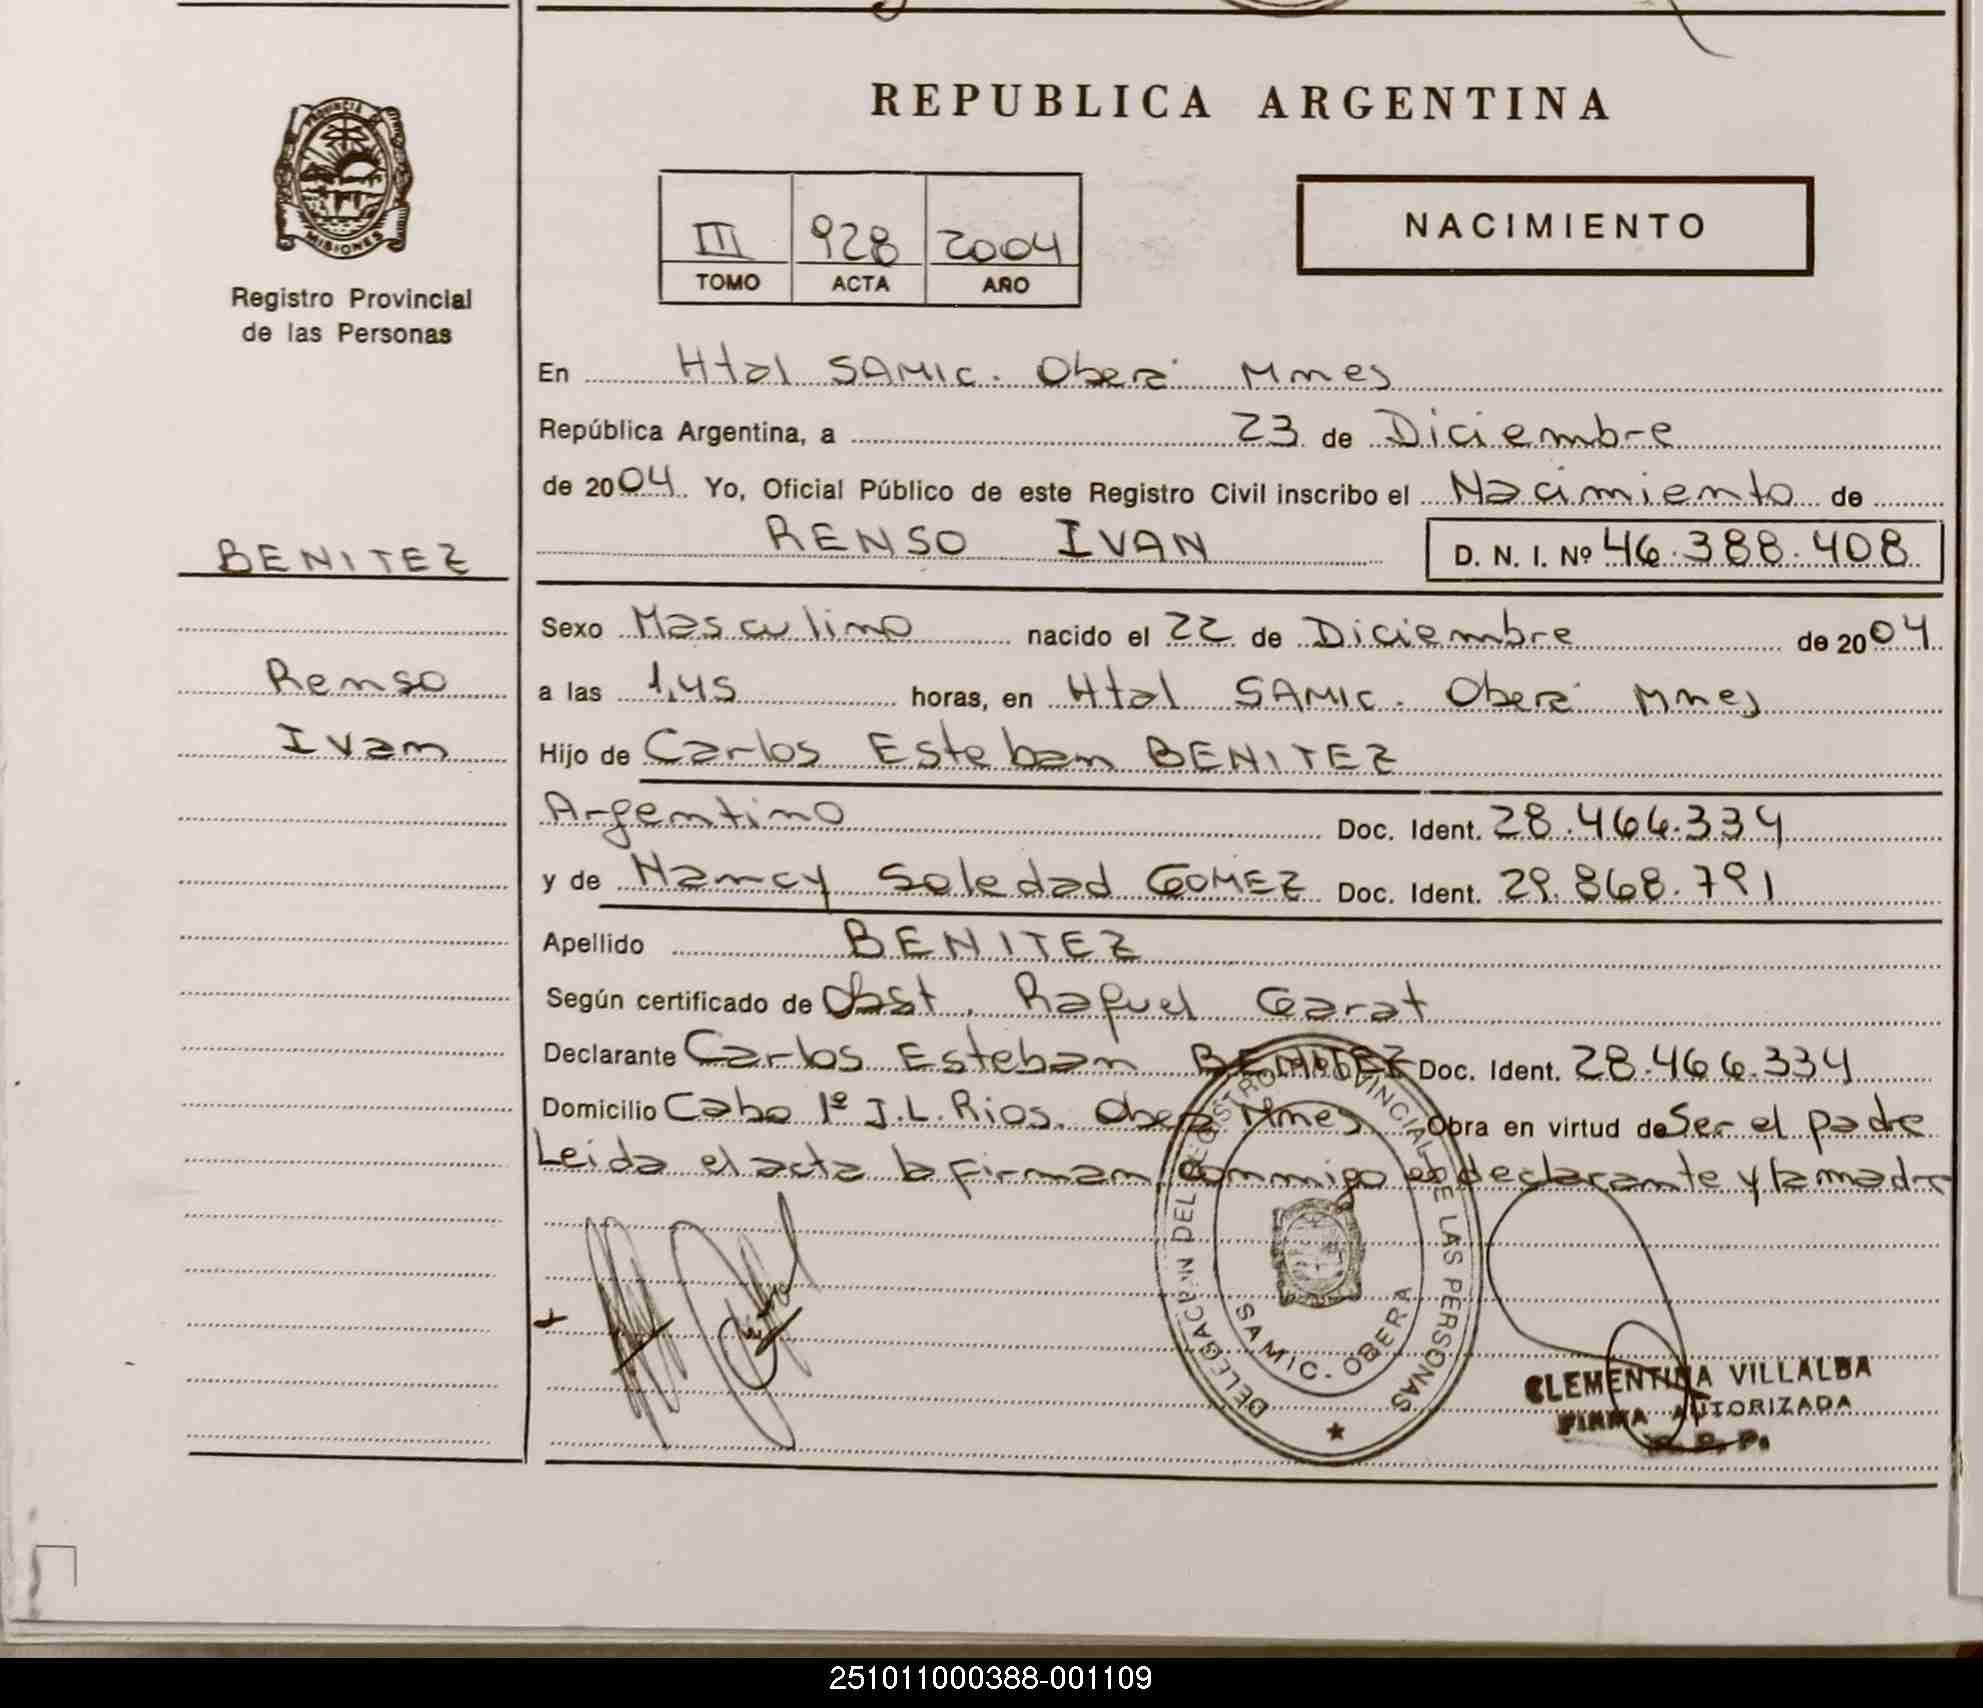 REPUBLICA ARGENTINA
PROVINCIA DE
MISIONES
Registro Provincial
de las Personas
III 928 2004
TOMO ACTA AÑO
NACIMIENTO
En Htal SAMIC. Oberá Mnes
República Argentina, a 23 de Diciembre
de 2004. Yo, Oficial Público de este Registro Civil inscribo el Nacimiento de
BENITEZ
RENSO IVAN D. N. I. Nº 46.388.408
Sexo Masculino nacido el 22 de Diciembre de 2004
Renso
a las 1,45 horas, en Htal SAMIC. Oberá Mnes
Ivan
Hijo de Carlos Esteban BENITEZ
Argentino Doc. Ident. 28.466.334
y de Nancy Soledad GOMEZ Doc. Ident. 29.868.791
Apellido BENITEZ
Según certificado de Obst. Raquel Garat
Declarante Carlos Esteban BENITEZ Doc. Ident. 28.466.334
Domicilio Cabo 1º J.L. Rios. Oberá Mnes Obra en virtud de Ser el padre
Leida el acta la firman conmigo el declarante y la madre
DELEGACION DEL REGISTRO PROVINCIAL DE LAS PERSONAS
SAMIC. OBERA
CLEMENTINA VILLALBA
FIRMA AUTORIZADA
R. P. P.
251011000388-001109